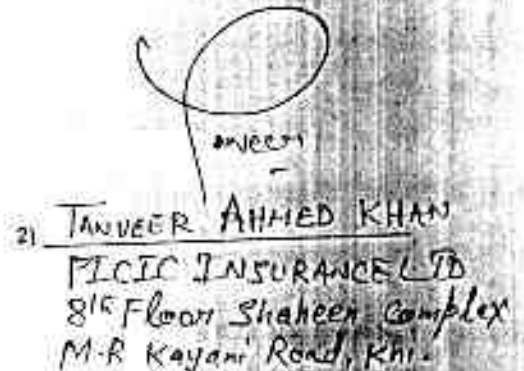 2) TANVEER AHMED KHAN
PICIC INSURANCE LTD
8th Floor Shaheen Complex
M.R Kayani Road, Khi.